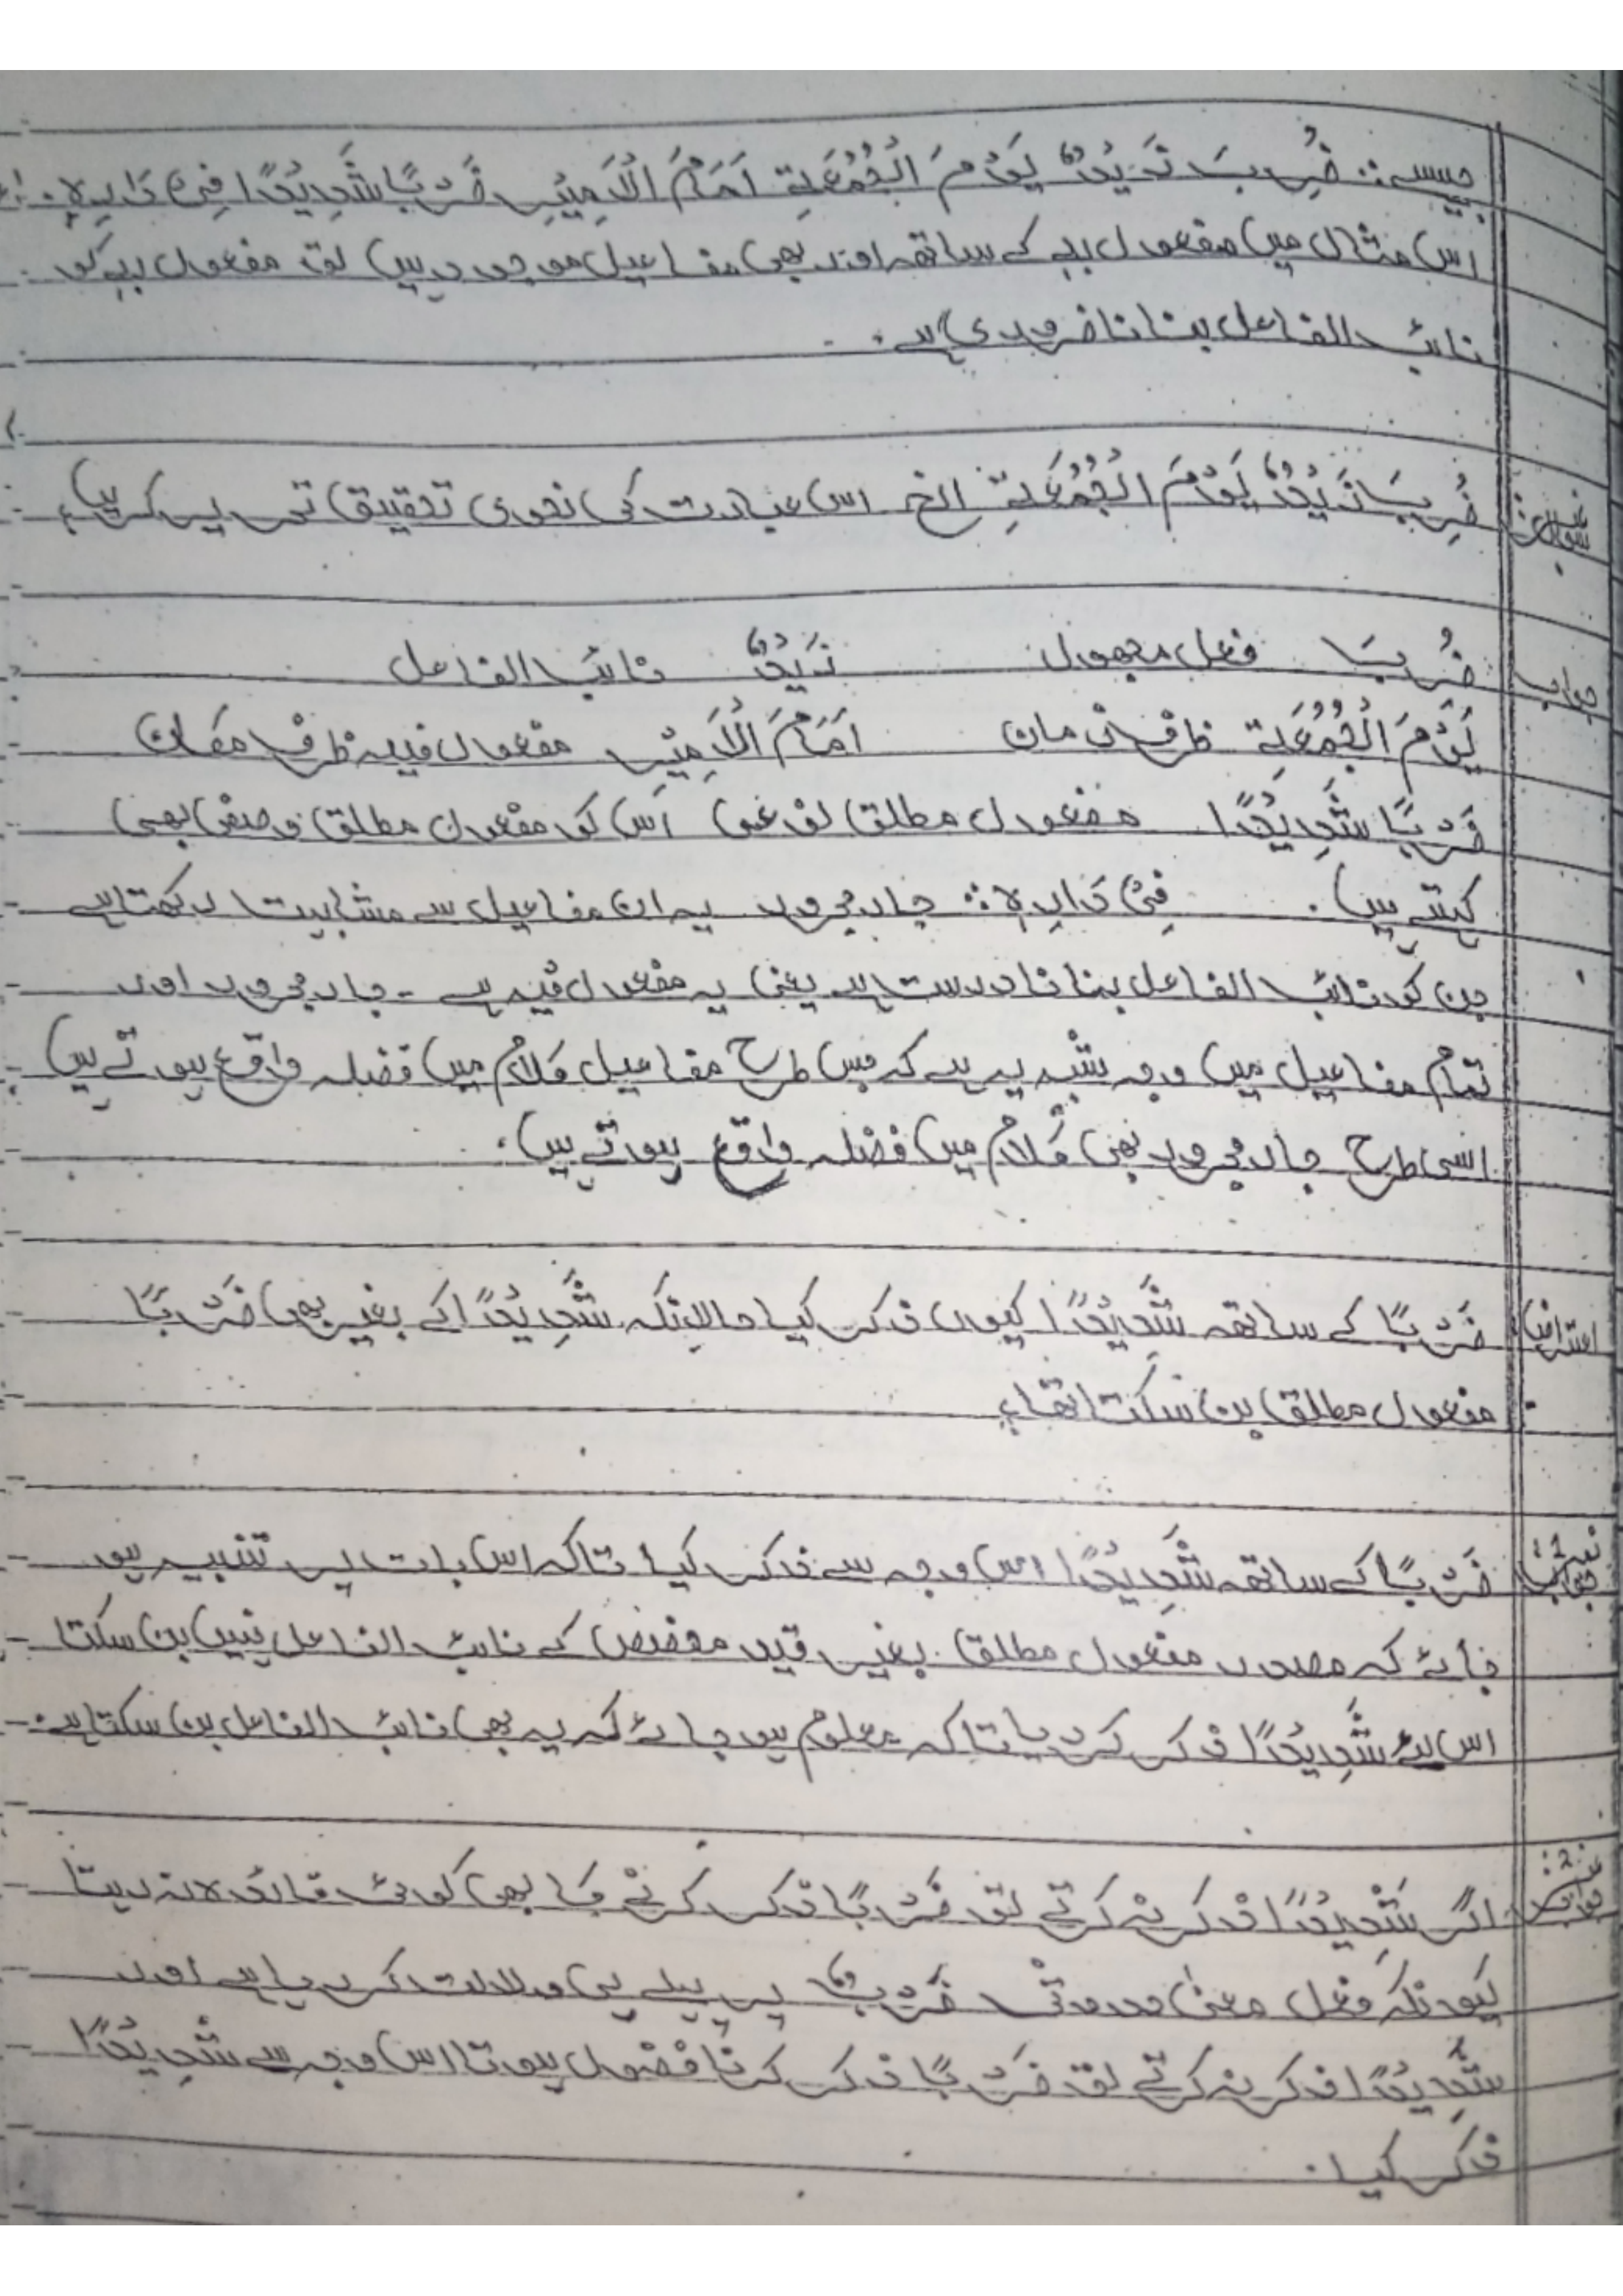 جیسے: ضُرِبَ زَیْدٌ یَوْمَ الْجُمُعَةِ اَمَامَ الْاَمِیْرِ ضَرْبًا شَدِیْدًا فِیْ دَارِہٖ
اس مثال میں مفعول بہٖ کے ساتھ اور بھی مفاعیل موجود ہیں لہٰذا مفعول بہٖ کو
نائب الفاعل بنانا ضروری ہے۔
سوال: ضُرِبَ زَیْدٌ یَوْمَ الْجُمُعَةِ الخ اس عبارت کی نحوی تحقیق تحریر کریں؟
جواب ضُرِبَ فعل مجہول زَیْدٌ نائب الفاعل
یَوْمَ الْجُمُعَةِ ظرف زمان اَمَامَ الْاَمِیْرِ مفعول فیہ ظرف مکان
ضَرْبًا شَدِیْدًا مفعول مطلق نوعی اس کو مفعول مطلق وصفی بھی
کہتے ہیں۔ فِیْ دَارِہٖ: جار مجرور یہ ان مفاعیل سے مشابہت رکھتا ہے
جن کو نائب الفاعل بنانا درست ہے یعنی یہ مفعول فیہ ہے۔ جار مجرور اور
تمام مفاعیل میں وجہ شبہ یہ ہے کہ جس طرح مفاعیل کلام میں فضلہ واقع ہوتے ہیں
اسی طرح جار مجرور بھی کلام میں فضلہ واقع ہوتے ہیں۔
اعتراض ضَرْبًا کے ساتھ شَدِیْدًا کیوں ذکر کیا حالانکہ شَدِیْدًا کے بغیر بھی ضَرْبًا
مفعول مطلق بن سکتا تھا؟
جواب ضَرْبًا کے ساتھ شَدِیْدًا اس وجہ سے ذکر کیا تاکہ اس بات پر تنبیہ ہو
جائے کہ مصدر مفعول مطلق بغیر قید مخصص کے نائب الفاعل نہیں بن سکتا
اس لئے شَدِیْدًا ذکر کر دیا تاکہ معلوم ہو جائے کہ یہ بھی نائب الفاعل بن سکتا ہے۔
جواب اگر شَدِیْدًا ذکر نہ کرتے تو ضَرْبًا ذکر کرنے کا بھی کوئی فائدہ نہ رہتا
کیونکہ فعل معنیٰ حدوثی ضَرْبٌ پر پہلے ہی دلالت کر رہا ہے اور
شَدِیْدًا ذکر نہ کرتے تو ضَرْبًا ذکر کرنا فضول ہوتا اس وجہ سے شَدِیْدًا
ذکر کیا۔